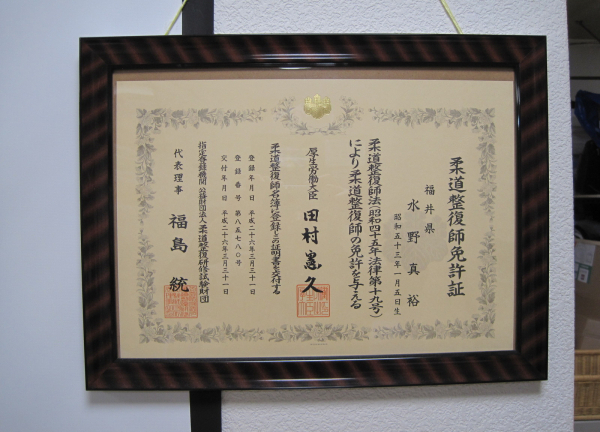 柔道整復師免許証
福井県
水野真裕
昭和五十三年一月五日生
柔道整復師法（昭和四十五年法律第十九号）
により柔道整復師の免許を与える
厚生労働大臣 田村憲久
柔道整復師名簿に登録しこの証明書を交付する
登録年月日 平成二十六年三月三十一日
登録番号 第八五七八〇号
交付年月日 平成二十六年三月三十一日
指定登録機関 公益財団法人柔道整復研修試験財団
代表理事 福島統